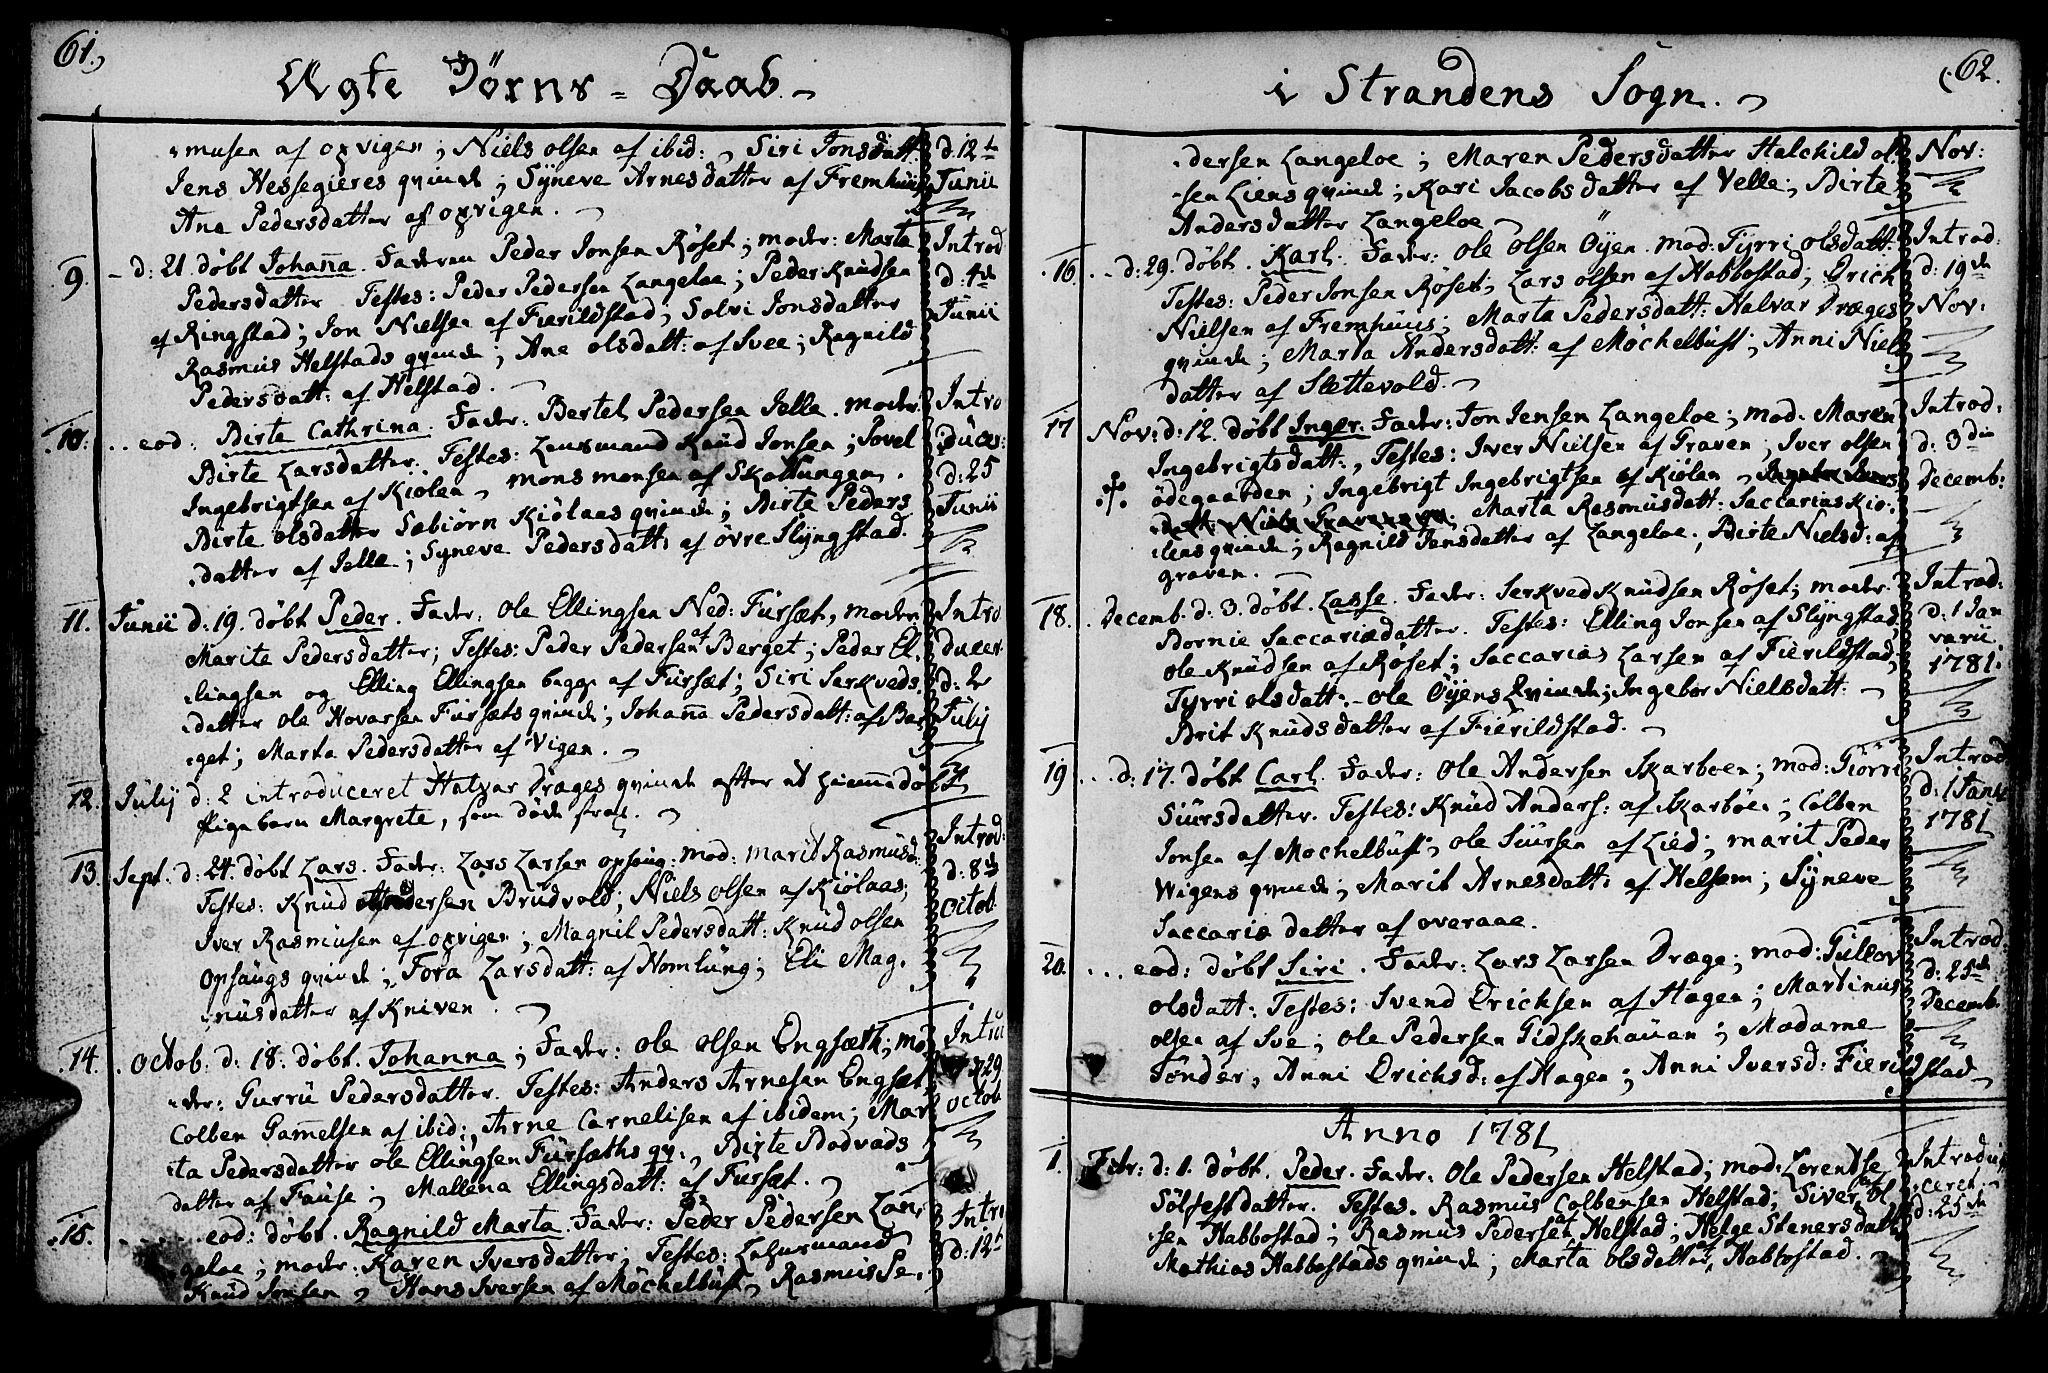 61.
Ægte Börns = Daab. -
-musen af oxvigen; Niels olsen af ibid: , Siri Jonsdatt: d: 12te
Jens Hessegieres qvinde; Syneve Arnesdatter af Fremhuus Junii
Ane Pedersdatter af oxvigen.
9. - d: 21. döbt Johanna. Faderen Peder Jonsen Röset; moder: Marta Introd
Pedersdatter Testes: Peder Pedersen Langeloe; Peder Knudsen d: 4de
af Ringstad; Jon Nielsen af Fierildstad, Solvi Jonsdatter Junii
Rasmus Helstads qvinde; Ane olsdatt: af Svee; Ragnild
Pedersdatt: af Helstad.
10. .. eod: Birte Cathrina. Fader: Bertel Pedersen Jelle. moder: Intro
Birte Larsdatter. Testes: Lensmand Knud Jonsen; Povel duces:
Ingebrigtsen af Kiölen, mons monsen af Skottungen. d: 25
Birte olsdatter Sæbiörn Kiölaas qvinde; Birte Peders Junii
-datter af Jelle; Syneve Pedersdatt: af övre Slyngstad.
11. Junii d: 19. döbt Peder. Fader: Ole Ellingsen Ned: Fürsæt, moder Intro
Marite Pedersdatter; Testes: Peder Pedersen af Berget; Peder El- ducer
-lingsen og Elling Ellingsen begge af Fürsæt; Siri Serkveds- d: 2
-datter ole Hovarsen Fürsæts qvinde; Johanna Pedersdatt: af Ber- Julij
-get; Marta Pedersdatter af Vigen.
12. Julij d: 2 introduceret Halvar Dræges qvinde efter et hiemmedöbt
Pigebarn Margrete, som döde strax.
13. Sept. d: 24. döbt Lars. Fader: Lars Larsen opsaug. mod: marit Rasmusd: Introd:
Testes: Knud Pedersen Brudvold; Niels olsen af Kiölaas; d: 8de
Iver Rasmusen af oxvigen; Magnil Pedersdatt: Knud olsen octob
opsaugs qvinde; Tora Larsdatt: af Homlung; Eli Mag-
-nusdatter af Kniven.
14. . octob. d: 18. döbt. Johanna; Fader: ole olsen Engsæth; mo- Intro
-der: Gurru Pedersdatter. Testes: Anders Arnesen Engsæt 29
Colben Gammelsen af ibid:, Arne Carnelisen af ibidem; Mar- octob
-ta Pedersdatter ole Ellingsen Fürsæths qv:, Birte Bodvads
datter af Fause; Mallena Ellingsdatt: af Fürsæt.
15. ...eod: döbt. Ragnild Marta. Fader: Peder Pedersen Lan- Intro
-geloe; moder: Karen Iversdatter; Testes: Lehnsmand d: 12
Knud Jonsen, Hans Iversen af Möchelbust, Rasmus Pe-
62.
i Strandens Sogn.
-dersen Langeloe; Maren Pedersdatter Halchild ol- Nov:
-sen Liens qvinde; Kari Jacobsdatter af Velle; Birte
Andersdatter Langeloe
16. .. d: 29. döbt. Karl. Fader: Ole olsen Öyen. mod: Tyrri olsdatt: Introd:
Testes: Peder Jonsen Röset; Lars olsen af Habbostad; Erich d: 19de
Nielsen af Fremhuus; Marta Pedersdatt: Halvar Dræges Nov:
qvinde; Marta Andersdatt: af Möchelbust; Anni Niels
datter af Slettevold.
17 Nov: d: 12. döbt Inger. Fader: Jon Jensen Langeloe; mod: Maren Introd:
Ingebrigtsdatt:, Testes: Iver Nielsen af Graven; Iver olsen d: 3die
ödegaarden; Ingebrigt Ingebrigtsen af Kiölen, Decemb:
Marta Rasmusdatt: Saccarias Kiö-
-lens qvinde; Ragnild Jensdatter af Langeloe.; Birte Nielsd: af
graven.
18. . Decemb. d: 3. döbt. Lasse. Fader: Serkved Knudsen Röset; moder. Introd:
Bornie Saccariædatter. Testes: Elling Jonsen af Slyngstad, d: 1 Jan
Ole Knudsen af Röset; Saccarias Larsen af Fierildstad; varii
Tyrri olsdatt: - ole Öyens Qvinde; Ingebor Nielsdatt: 1781.
Brit Knudsdatter af Fierildstad.
19 ... d: 17. döbt Carl. Fader: Ole Andersen Skarboen; mod: Giörri Introd
Siursdatter. Testes: Knud Anders: af Skarböe; Colben d: 1 Janv
Jonsen af Mochelbust, ole Siursen af Lied; marit Peder 1781
Wigens qvinde; Marit Arnesdatt: af Helsem; Syneve
Saccariæ datter af overaae.
20. ... eod: döbt Siri. Fader: Lars Larsen Dræge; mod: Gullov Introd:
olsdatt: Testes: Svend Erichsen af Hagen; Martinus d: 25de
olsen af Sve; ole Pedersen Gidskehauen; Madame Decemb.
Tönder, Anni Erichsd: af Hagen; Anni Iversd: Fierildstad
Anno 1781
1. Febr: d: 1. döbt. Peder. Fader: Ole Pedersen Helstad; mod: Lorentse Introdu
Sölfestdatter. Testes. Rasmus Colbensen Helstad; Siver ol- ceret.
-sen Habbostad; Rasmus Pedersen Helstad; Helge Stenersdatt: d: 25de
Mathias Habbostads qvinde; Marta olsdatt: af Habbostad.